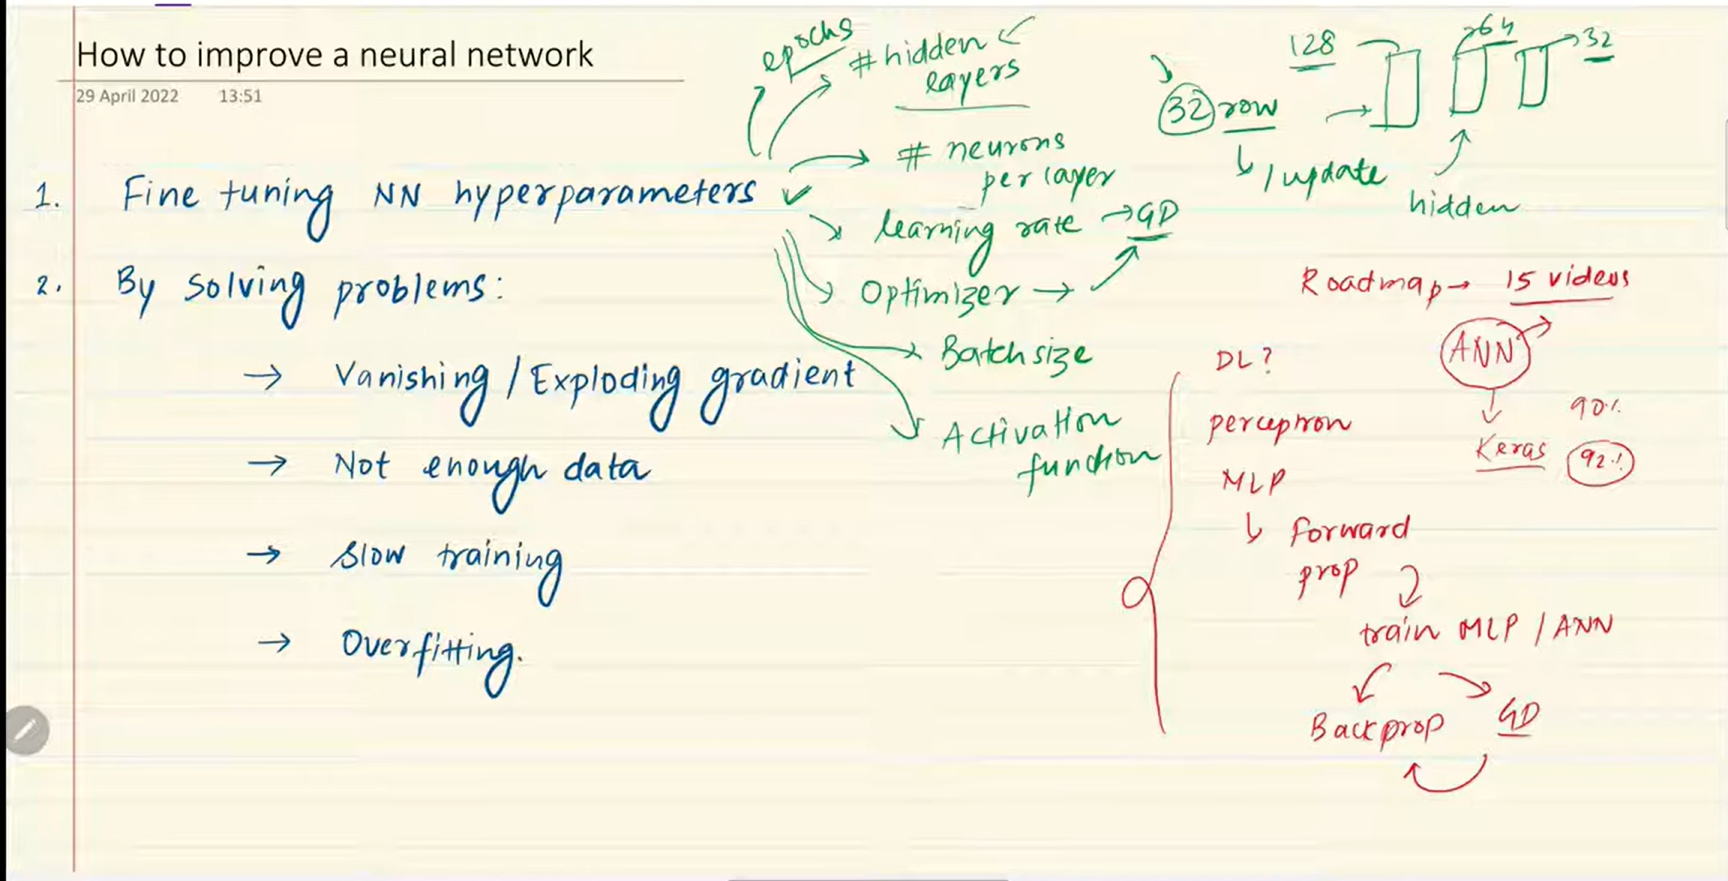 How to improve a neural network
29 April 2022 13:51
1. Fine tuning NN hyperparameters
2. By solving problems:
→ Vanishing / Exploding gradient
→ Not enough data
→ Slow training
→ Overfitting.
epochs
# hidden
layers
# neurons
per layer
learning rate → GD
Optimizer →
Batch size
Activation
function
32 row
1 update
128
64
32
hidden
Roadmap → 15 videos
ANN
Keras
90%
92%
DL?
perceptron
MLP
forward
prop
train MLP / ANN
Backprop GD